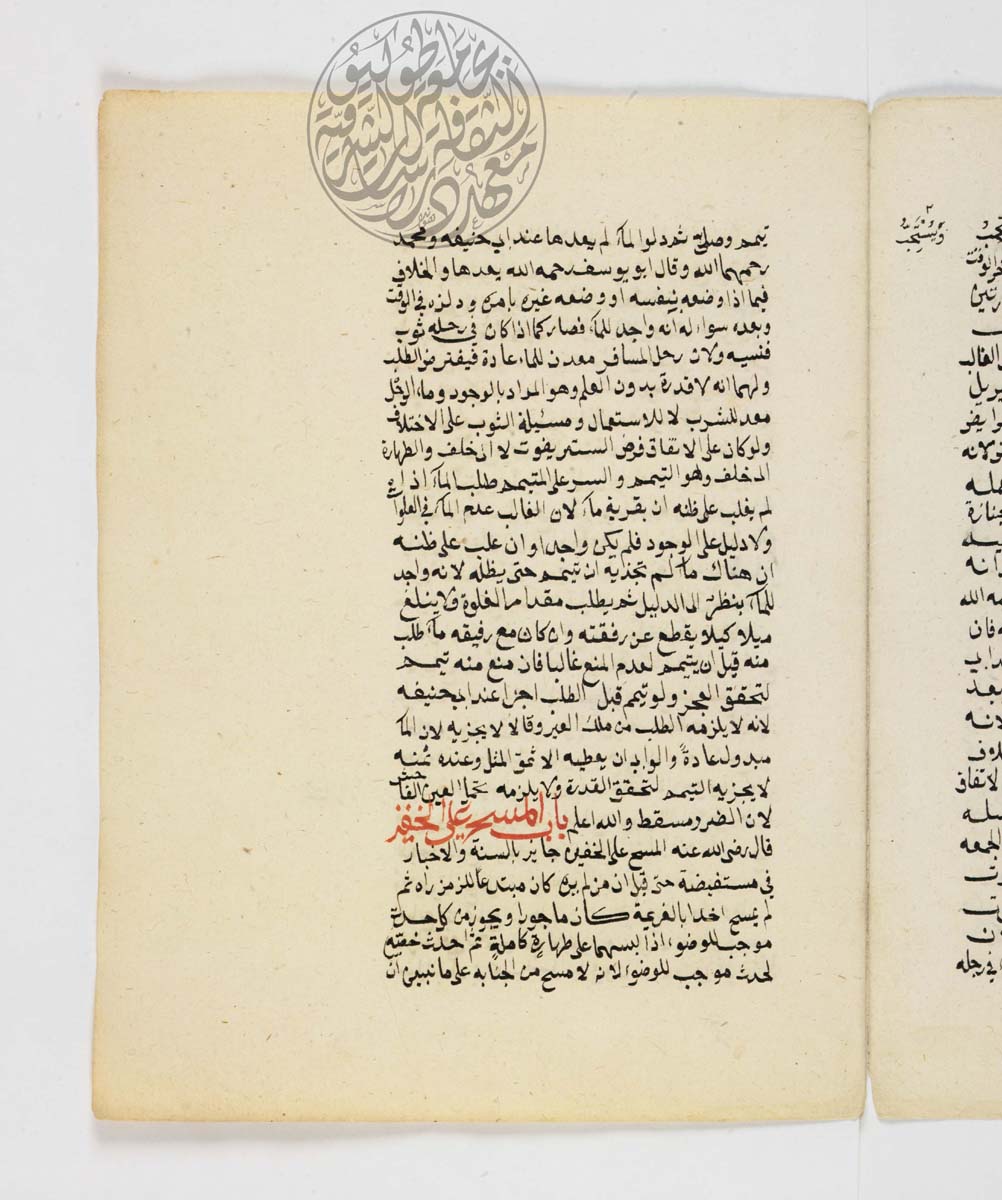 تيمم وصلى ثم دلوا الماء لم يعدها عند ابي حنيفه ومحمد
رحمهما الله وقال ابو يوسف رحمه الله يعدها والخلاف
فيما اذا وضعه بنفسه او وضعه غيره بامره وذكره في الوقت
وبعده سواء له انه واجد للماء فصار كما اذا كان في رحله ثوب
فنسيه ولان رحل المسافر معدن للماء عادة فيفترض الطلب
ولهما انه لا قدرة بدون العلم وهو المراد بالوجود وماء الرحل
معد للشرب لا للاستعمال ومسئلة الثوب على الاختلاف
ولو كان على الاتفاق ففرض الستر يفوت لا الى خلف والطهارة
الى خلف وهو التيمم و السر على المتيمم طلب الماء اذا
لم يغلب على ظنه ان بقربه ماء لان الغالب عدم الماء في الفلوات
ولا دليل على الوجود فلم يكن واجدا وان غلب على ظنه
ان هناك ماء لم تجذيه ان تيمم حتى يظله لانه واجد
للماء بنظر الى الدليل ثم يطلب مقدام الغلوة ولا يبلغ
ميلا كيلا يقطع عن رفقته وان كان مع رفيقه ماء طلب
منه قبل ان يتيمم لعدم المنع غالبا فان منع منه تيمم
لتحقق العجز ولو تيمم قبل الطلب اجزا عند ابي حنيفه
لانه لا يلزمه الطلب من ملك الغير وقالا لا يجزيه لان الماء
مبدول عادة والواب ان يعطيه الا ثمن المثل وعنده ثمنه
لا يجزيه التيمم لتحقق القدرة ولا يلزمه تحمل الغبن الفاحش
لان الضرر مسقط والله اعلم باب المسح على الخفين
قال رضي الله عنه المسح على الخفين جايز بالسنة والاخبار
في مستفيضة حتى قيل ان من لم يره كان مبتدعا للزمز راه ثم
لم يمسح اخدا بالعزيمة كان ماجورا ويجوز من كل حدث
موجب للوضوء اذا لبسهما على طهارة كاملة ثم احدث خصه
لحدث موجب للوضوء لانه لا مسح من الجنابه على ما نبين ان